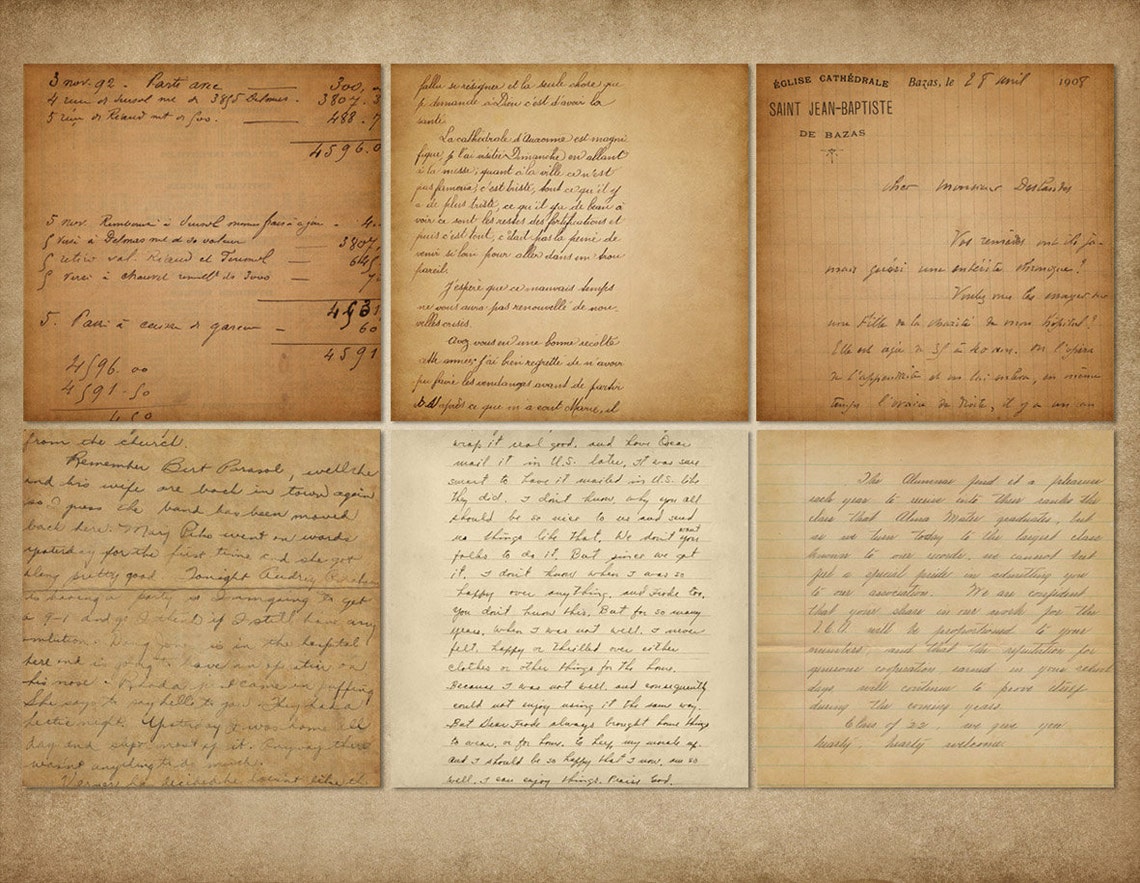 3 nov. 92. Parti avec 300,
4 3895 Delmas. 3807.3
5 Ricaud 500. 488.7
4596.0
5 nov. à 4.
5 Versé à Delmas 3807,
5 retiré val. Ricaud et 645
5 Versé à Chauvel de 3000 7
4531
5. à caisse garcon 60
4591
4596.00
4591.50
4.50
fallu se résigner et la seule chose que
je demande à Dieu c'est d'avoir la
santé
La cathédrale d'Auxonne est magni
fique je l'ai visitée Dimanche en allant
à la messe; quant à la ville ce n'est
pas fameux; c'est triste, tout ce qu'il y
a de plus triste, ce qu'il y a de beau à
voir ce sont les restes des fortifications et
puis c'est tout, c'était pas la peine de
venir si loin pour aller dans un trou
pareil.
J'espère que ce mauvais temps
ne vous aura pas renouvellé de nou
velles crises.
Avez vous eu une bonne recolte
cette année; j'ai bien regretté de n'avoir
pu faire les vendanges avant de partir
D'après ce que m'a écrit Marie, il
ÉGLISE CATHÉDRALE
SAINT JEAN-BAPTISTE
DE BAZAS
Bazas, le 28 avril 1908
Cher Monsieur Deslandes
Vos remèdes ont ils ja-
mais guéri une entérite chronique?
Voulez vous les essayer sur
une Fille de la Charité de mon hôpital?
Elle est agée de 35 à 40 ans. On l'opéra
de l'appendicite et on lui enleva, en même
temps l'ovaire de droite, il y a un an
from the church.
Remember Bert Parasol, well he
and his wife are back in town again
so I guess the band has been moved
back here. Mary went on words
yesterday for the first time and she got
along pretty good. Tonight Audrey
is having a party & I am going to get
a 9-1 and go I think if I still have any
is in the hospital
here and is going to have an operation on
his nose. Rhoda just came in puffing
She says to say hello to you. They had a
hectic night. Yesterday I was home ill
day and slept most of it. Anyway there
wasn't anything to do much.
he decided he doesn't like th
wrap it real good. and have Dear
mail it in U.S. later. It was sure
smart to have it mailed in U.S. like
they did. I don't know why you all
should be so nice to us and send
us things like that. We don't want you
folks to do it. But since we got
it. I don't know when I was so
happy over anything, and Frode too.
You don't know this. But for so many
years, when I was not well. I never
felt happy or thrilled over either
clothes or other things for the home.
Because I was not well. and consequently
could not enjoy using it the same way.
But Dear Frode always brought home things
to wear, or for home. to help my morale up.
And I should be so happy that I now, am so
well. I can enjoy things. Praise God.
The Alumnae find it a pleasure
each year to receive into their ranks the
class that Alma Mater graduates, but
as we turn today to the largest class
known to our records, we cannot but
feel a special pride in admitting you
to our association. We are confident
that your share in our work for the
I.C.A. will be proportioned to your
numbers and that the reputation for
generous cooperation earned in your school
days will continue to prove itself
during the coming years.
Class of '22, we give you
hearty, hearty welcome.